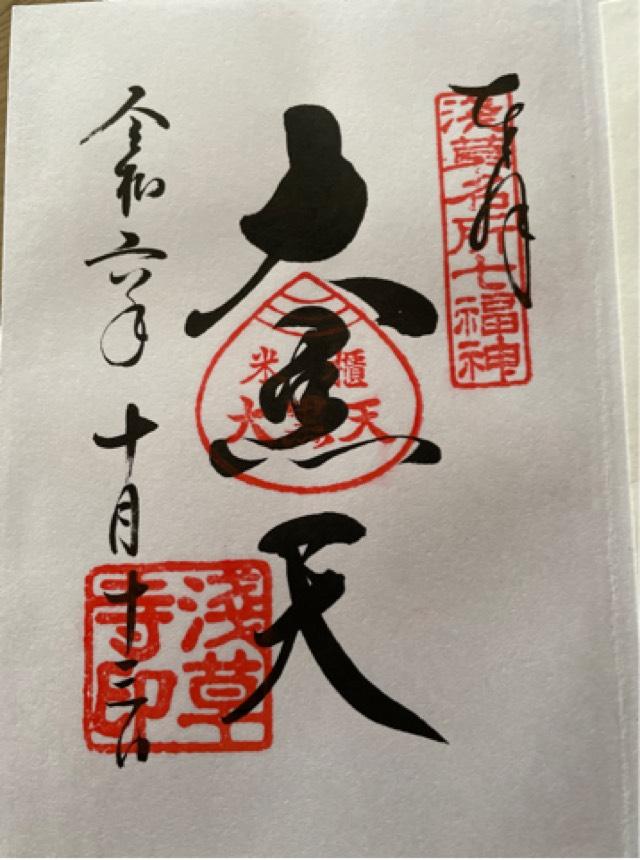 奉拝
淺草名所七福神
大黒天
米櫃
大黒天
令和六年十月十三日
淺草寺印